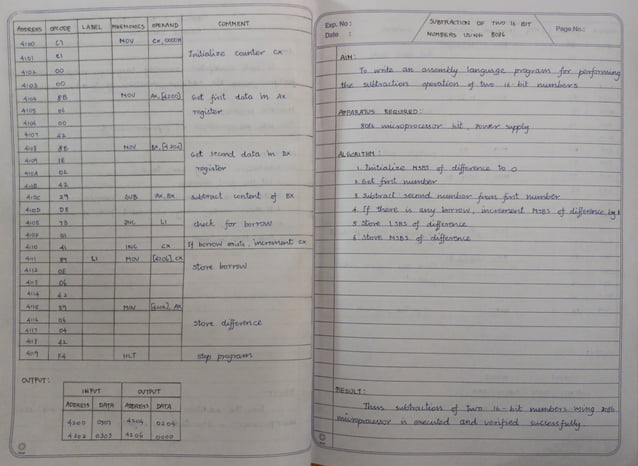 ADDRESS OPCODE LABEL MNEMONICS OPERAND COMMENT
4100 C7 MOV CX, 0000H
4101 C1 Initialize counter CX
4102 00
4103 00
4104 8B MOV AX, [4200] Get first data in AX
4105 06 register
4106 00
4107 42
4108 8B MOV BX, [4202]
4109 1E Get second data in BX
410A 02 register
410B 42
410C 29 SUB AX, BX subtract content of BX
410D D8
410E 73 L1 check for borrow
410F 01
4110 41 INC CX If borrow exists, increment CX
4111 89 L1 MOV [4206], CX
4112 0E store borrow
4113 06
4114 42
4115 89 MOV [4204], AX
4116 06
4117 04 store difference
4118 42
4119 F4 HLT stop program
OUTPUT:
INPUT OUTPUT
ADDRESS DATA ADDRESS DATA
4200 4204 0204
4202 0303 4206 0000
Exp. No : SUBTRACTION OF TWO 16 BIT Page No.:
Date : NUMBERS USING 8086
AIM:
To write an assembly language program for performing
the subtraction operation of two 16 bit numbers
APPARATUS REQUIRED:
8086 microprocessor kit, power supply
ALGORITHM:
1. Initialize MSBS of difference to 0
2. Get first number
3. Subtract second number from first number
4. If there is any borrow, increment MSBS of difference by 1
5. Store LSBS of difference
6. Store MSBS of difference
RESULT:
Thus subtraction of two 16-bit numbers using 8086
microprocessor is executed and verified successfully.